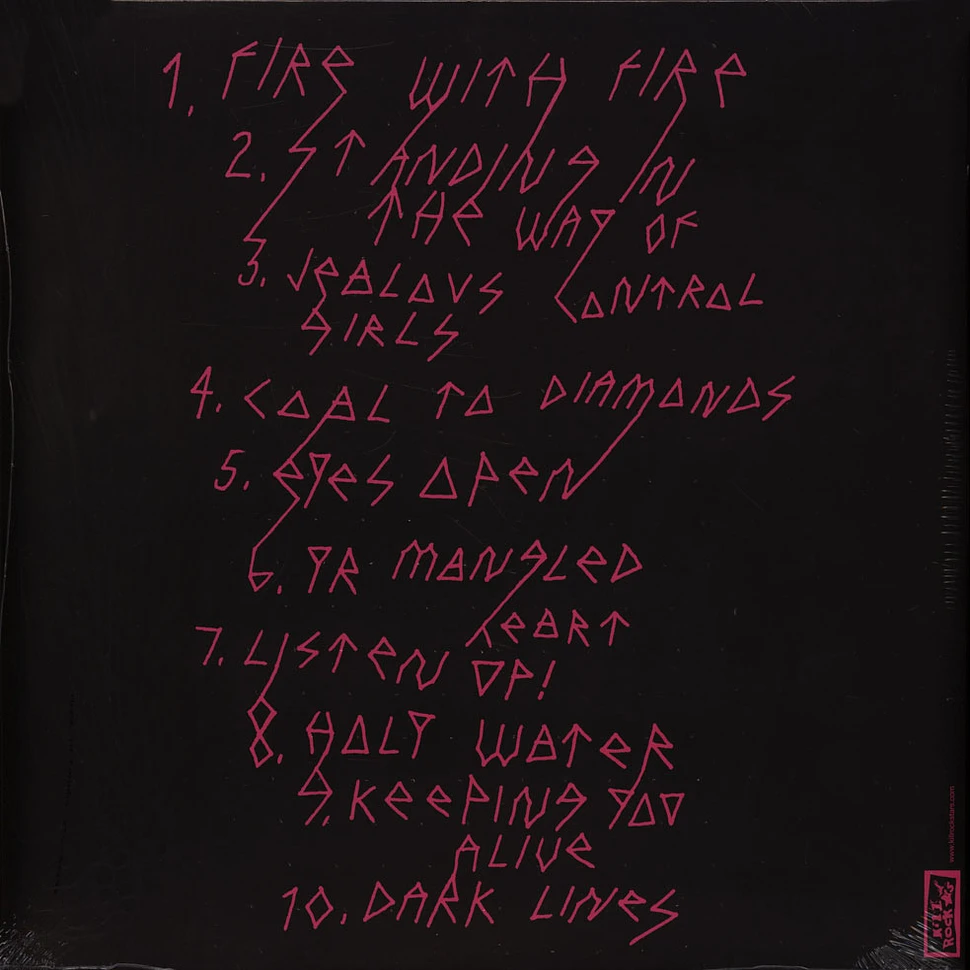 1. FIRE WITH FIRE
2. STANDING IN
THE WAY OF
CONTROL
3. JEALOUS
GIRLS
4. COAL TO DIAMONDS
5. EYES OPEN
6. YR MANGLED
HEART
7. LISTEN UP!
8. HOLY WATER
9. KEEPING YOU
ALIVE
10. DARK LINES
www.killrockstars.com
KILL
ROCK